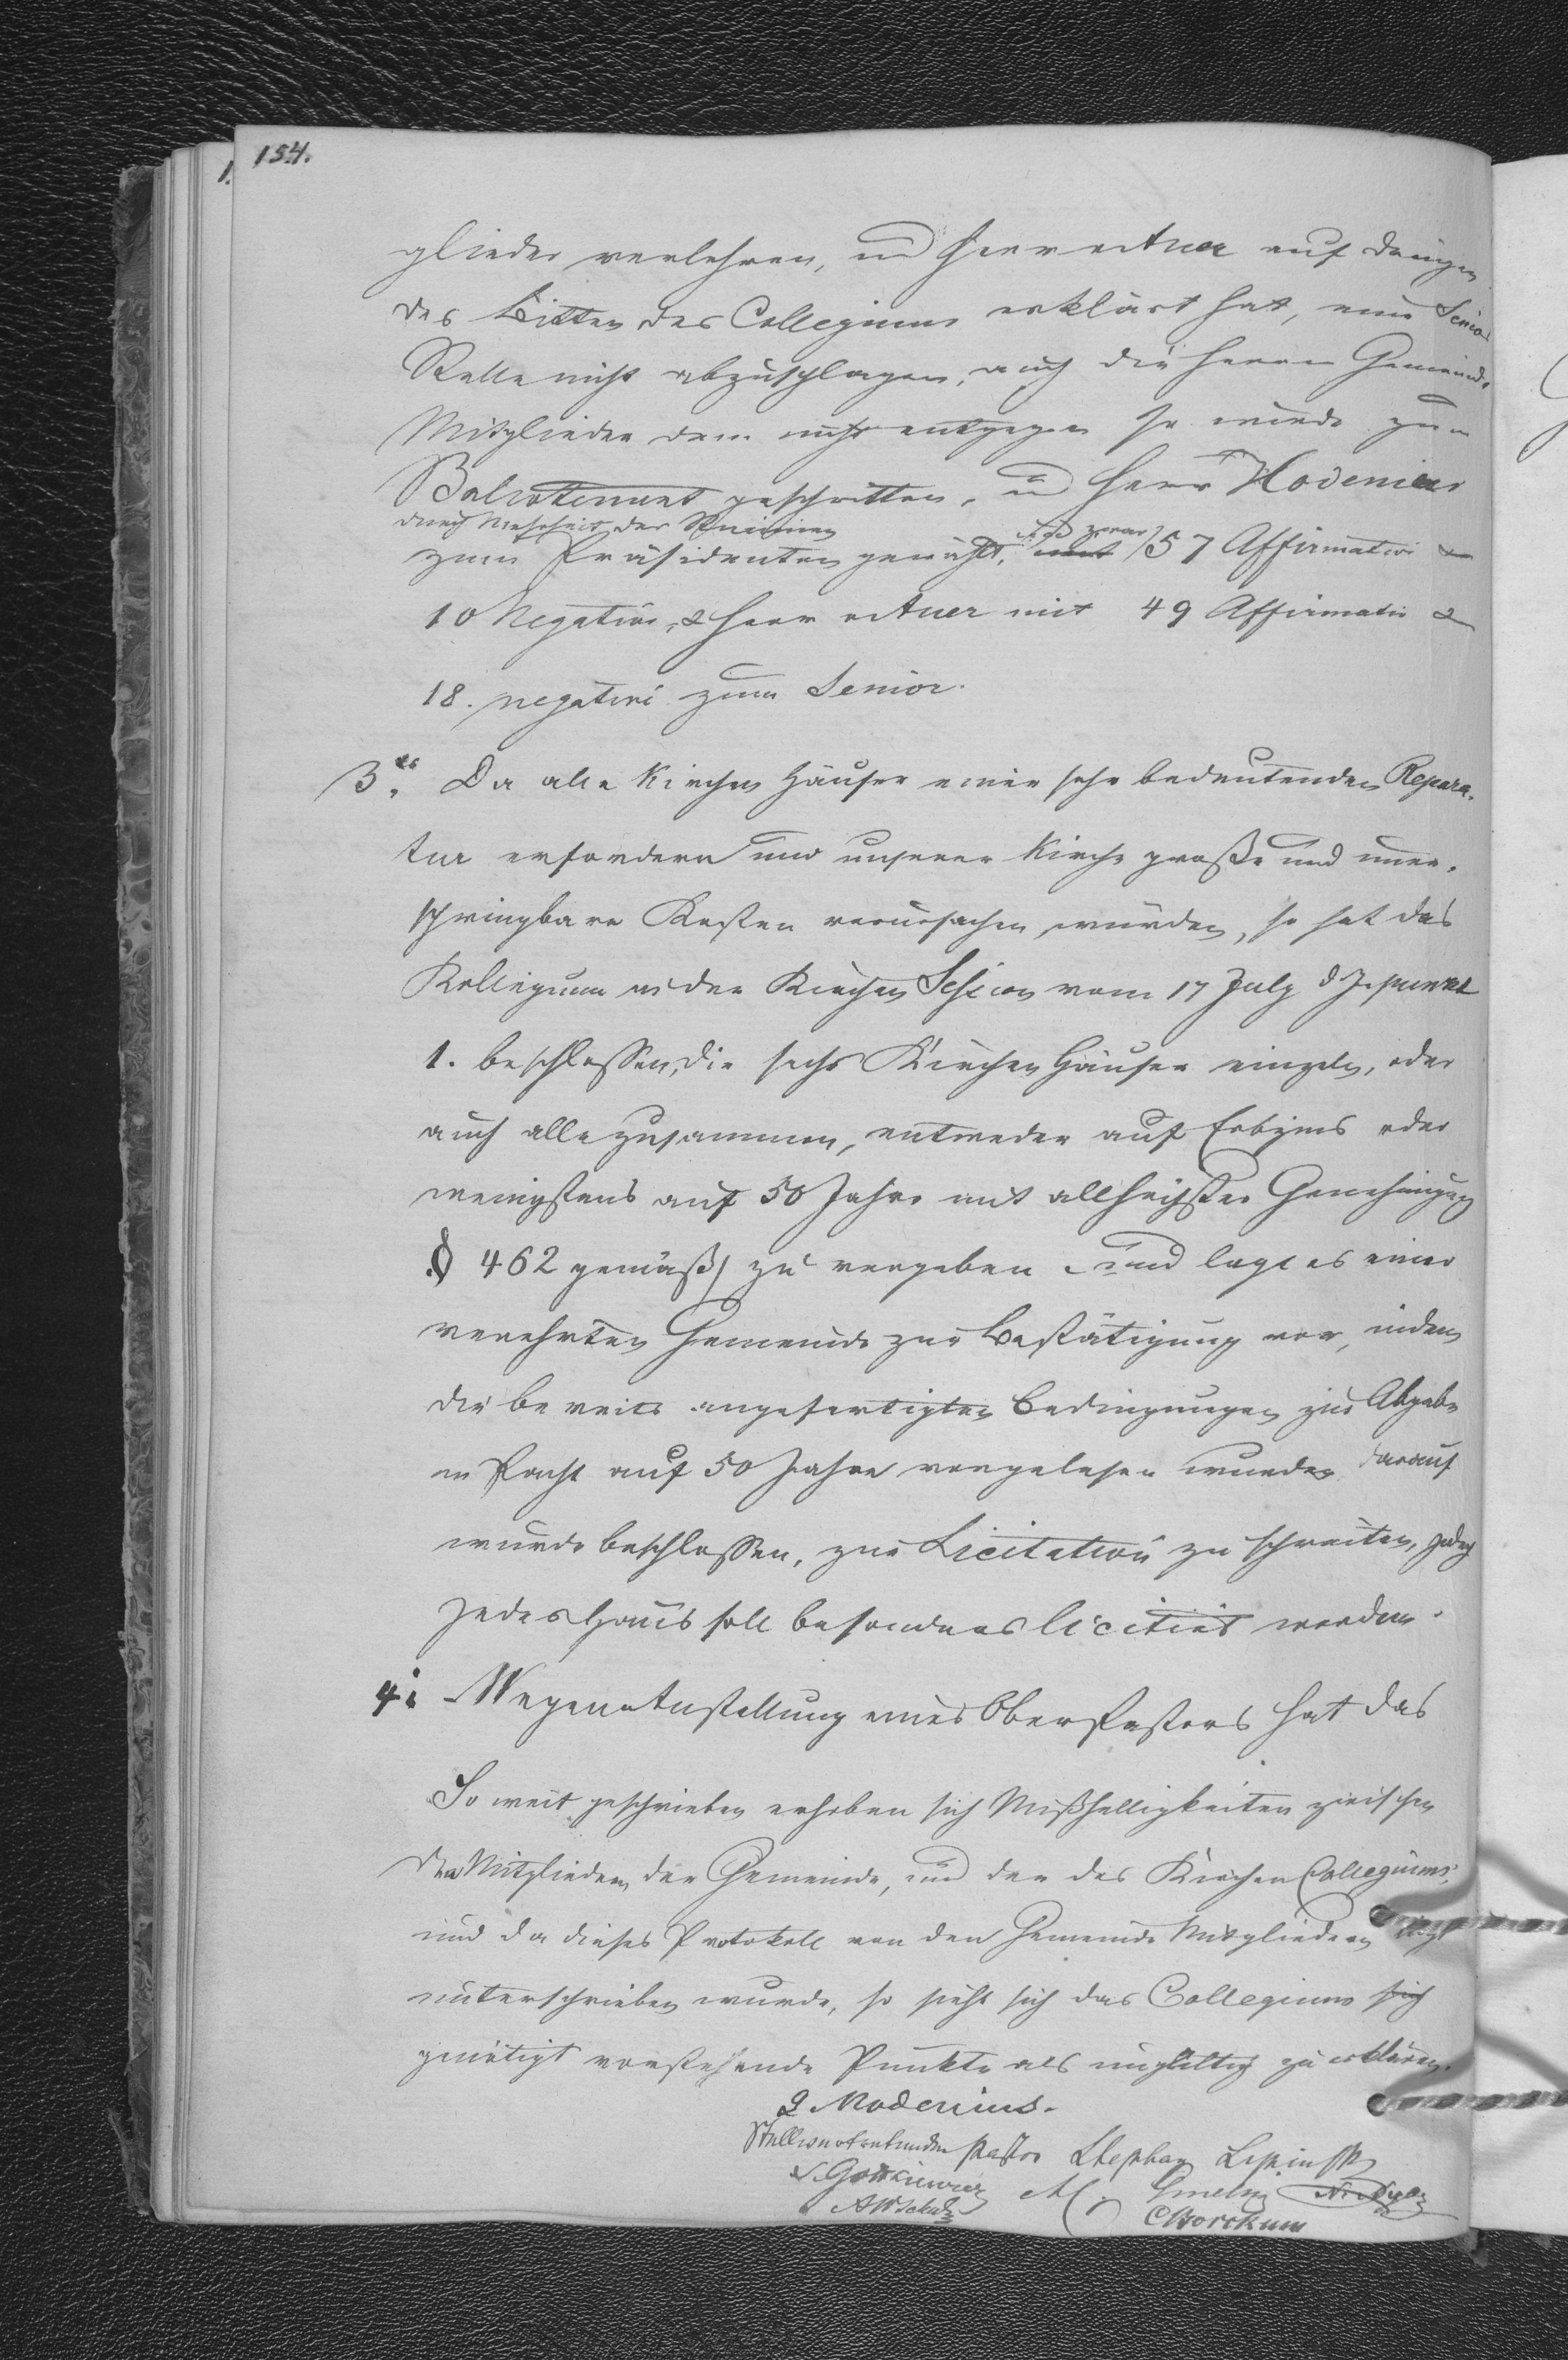 154.
glieder verlehren, und Herr Auer auf dringen
des Bitten des Collegiums erklärt hat, eine Senior
Stelle nicht abzuschlagen, auch die Herren Gemeinde
Mitglieder dem nicht entgegen so wurde zum
Ballottement geschritten, und Herr Modenius
durch Mehrheit der Stimmen
zum Präsidenten gewählt, und zwar 57 Affirmativ &
10 Negativ, & Herr Auer mit 49 Affirmativ &
18. negativ zum Senior.
3. Da alle Kirchen Häuser einer sehr bedeutenden Repara-
tur erfordern und unserer Kirche große und uner-
schwingbare Kosten verursachen würden, so hat das
Kollegium in der Kirchen Session vom 17 July d J. punkt
1. beschlossen, die sechs Kirchen Häuser einzeln, oder
auch alle zusammen, entweder auf Erbzins oder
wenigstens auf 50 Jahre mit allhöchster Genehmigung
§ 462 gemäß zu vergeben und legt es einer
verehrten Gemeinde zur Bestätigung vor, indem
die bereits angefertigten Bedingungen zur Abgabe
in Pacht auf 50 Jahre vorgelesen wurden darauf
wurde beschlossen, zur Licitation zu schreiten, jedoch
jedes Haus soll besonders licitirt werden.
4. Wegen Anstellung eines Ober Pastors hat das
So weit geschrieben erhoben sich Mißhelligkeiten zwischen
den Mitgliedern der Gemeinde, und der des Kirchen Collegiums,
und da dieses Protokoll von den Gemeinde Mitgliedern nicht
unterschrieben wurde, so sieht sich das Collegium sich
genötigt vorstehende Punkte als ungültig zu erklären.
Modenius.
Stellvertretender Pastor Stephan Lipinsky
AW Schulz
C Borckum